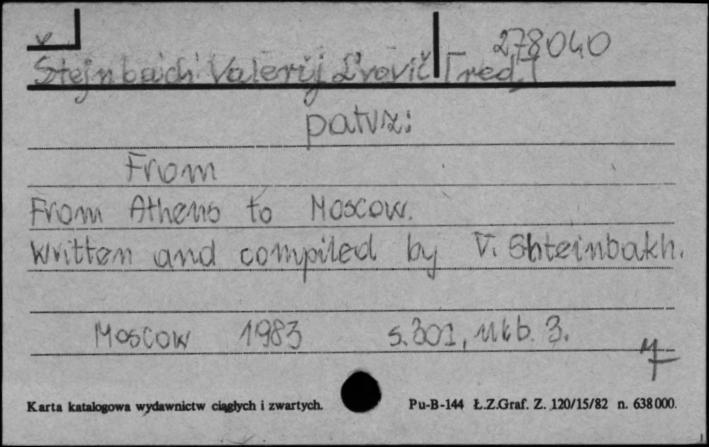 278040
Štejnbach Valerij L'vovič [red.]
patrz:
From
From Athens to Moscow.
Written and compiled by V. Shteinbakh.
Moscow 1983 s.301, nlb. 3.
Karta katalogowa wydawnictw ciągłych i zwartych. Pu-B-144 Ł.Z.Graf. Z. 120/15/82 n. 638000.